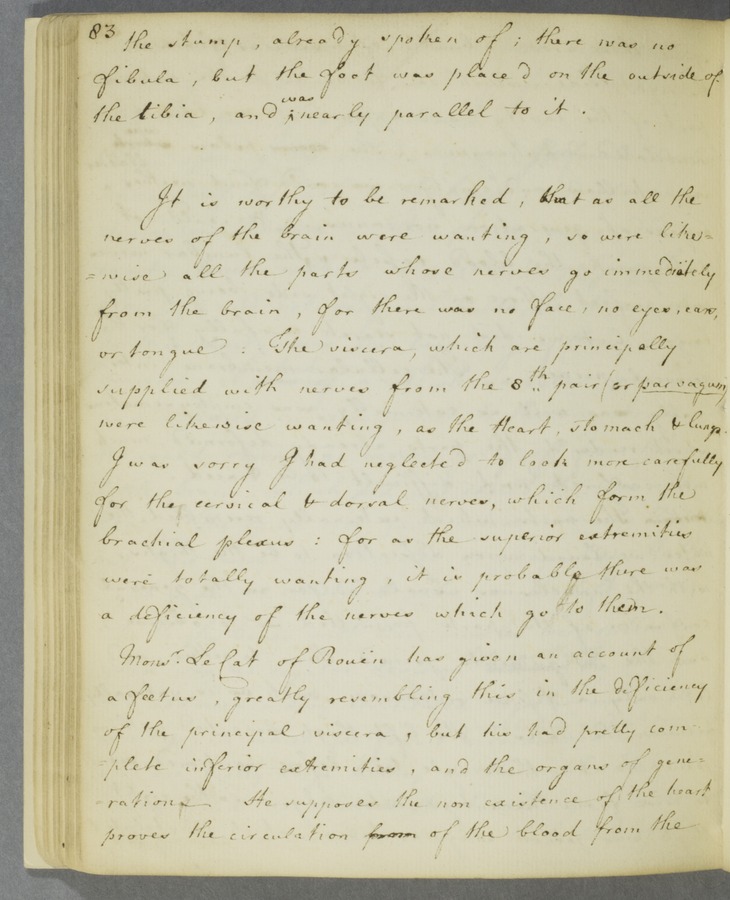 83
the stump, already spoken of; there was no
fibula, but the foot was place'd on the outside of
the tibia, and ^was nearly parallel to it.
It is worthy to be remarked, that as all the
nerves of the brain were wanting, so were like=
=wise all the parts whose nerves go immediately
from the brain, for there was no face, no eyes, ears,
or tongue: The viscera, which are principally
supplied with nerves from the 8th pair (or par vagum)
were likewise wanting, as the Heart, stomach & lungs.
I was sorry I had neglected to look more carefully
for the cervical & dorsal nerves, which form the
brachial plexus: for as the superior extremities
were totally wanting, it is probable there was
a deficiency of the nerves which go to them.
Monsr. Le Cat of Rouën has given an account of
a fœtus, greatly resembling this in the deficiency
of the principal viscera, but his had pretty com-
=plete inferior extremities, and the organs of gene=
=ration. He supposes the non existence of the heart
proves the circulation from of the blood from the